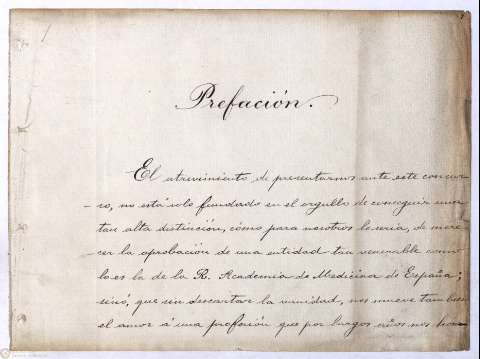 Prefación.
El atrevimiento de presentarnos ante este concur-
so, no está solo fundado en el orgullo de conseguir
tan alta distinción, cómo para nosotros lo sería, de mere-
cer la aprobación de una entidad tan venerable como
lo es la de la R. Academia de Medicina de España;
sinó, que sin descartar la vanidad, nos mueve tambien
el amor á una profesión que por largos años nos